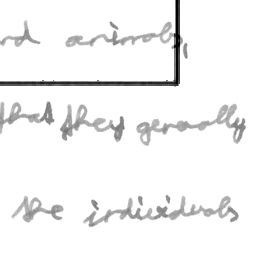 animals,
that they generally
the individuals